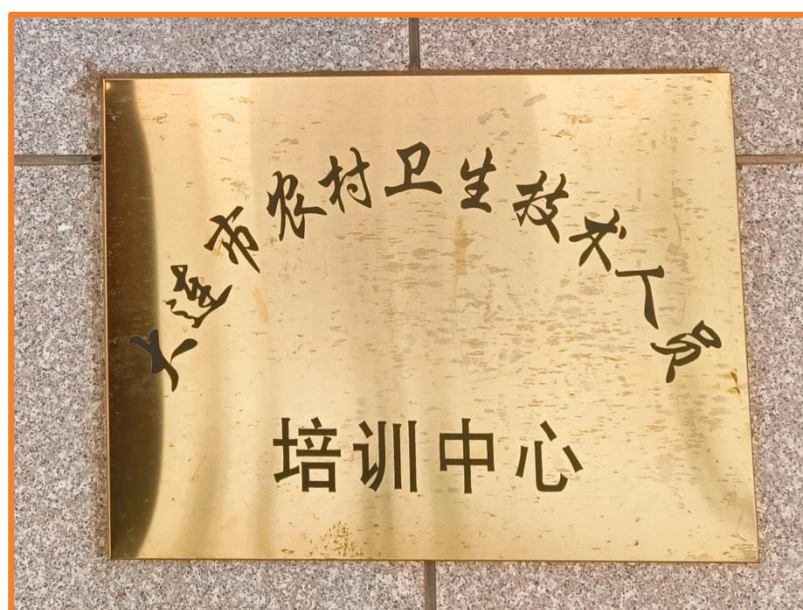 大连市农村卫生技术人员
培训中心